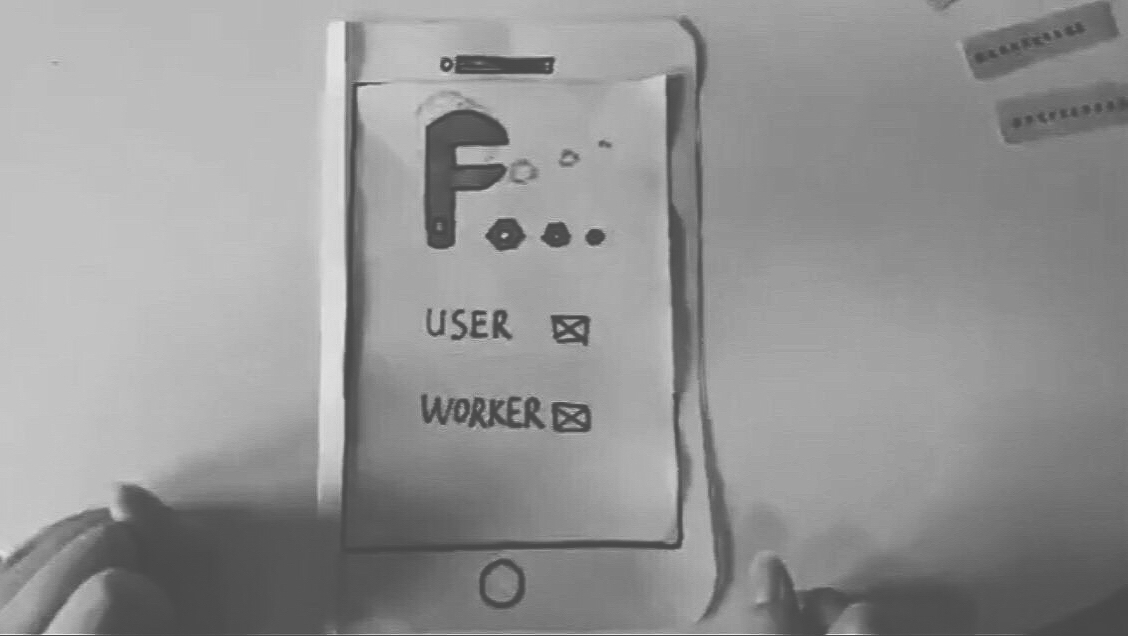 F...
USER
WORKER